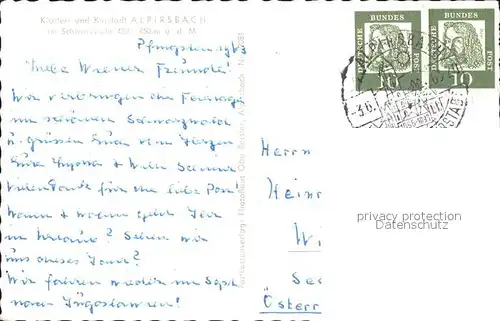 Kloster und Kurstadt ALPIRSBACH
im Schwarzwald 435 - 850 m ü. d. M.
Pfingsten 63
Liebe Wiener Freunde!
Wir verbringen die Feiertage
im schönen Schwarzwald
u. grüssen Euch vom Herzen
Eure
Vielen Dank für die liebe Post
Wann + wohin geht Ihr
in Urlaub? Sehen wir
uns dieses Jahr?
Wir fahren wieder im Sept.
nach Jugoslawien!
DEUTSCHE BUNDESPOST
10
DEUTSCHE BUNDESPOST
10
-3.6.
Herrn
Hein
Wi
Se
Österr
privacy protection
Datenschutz